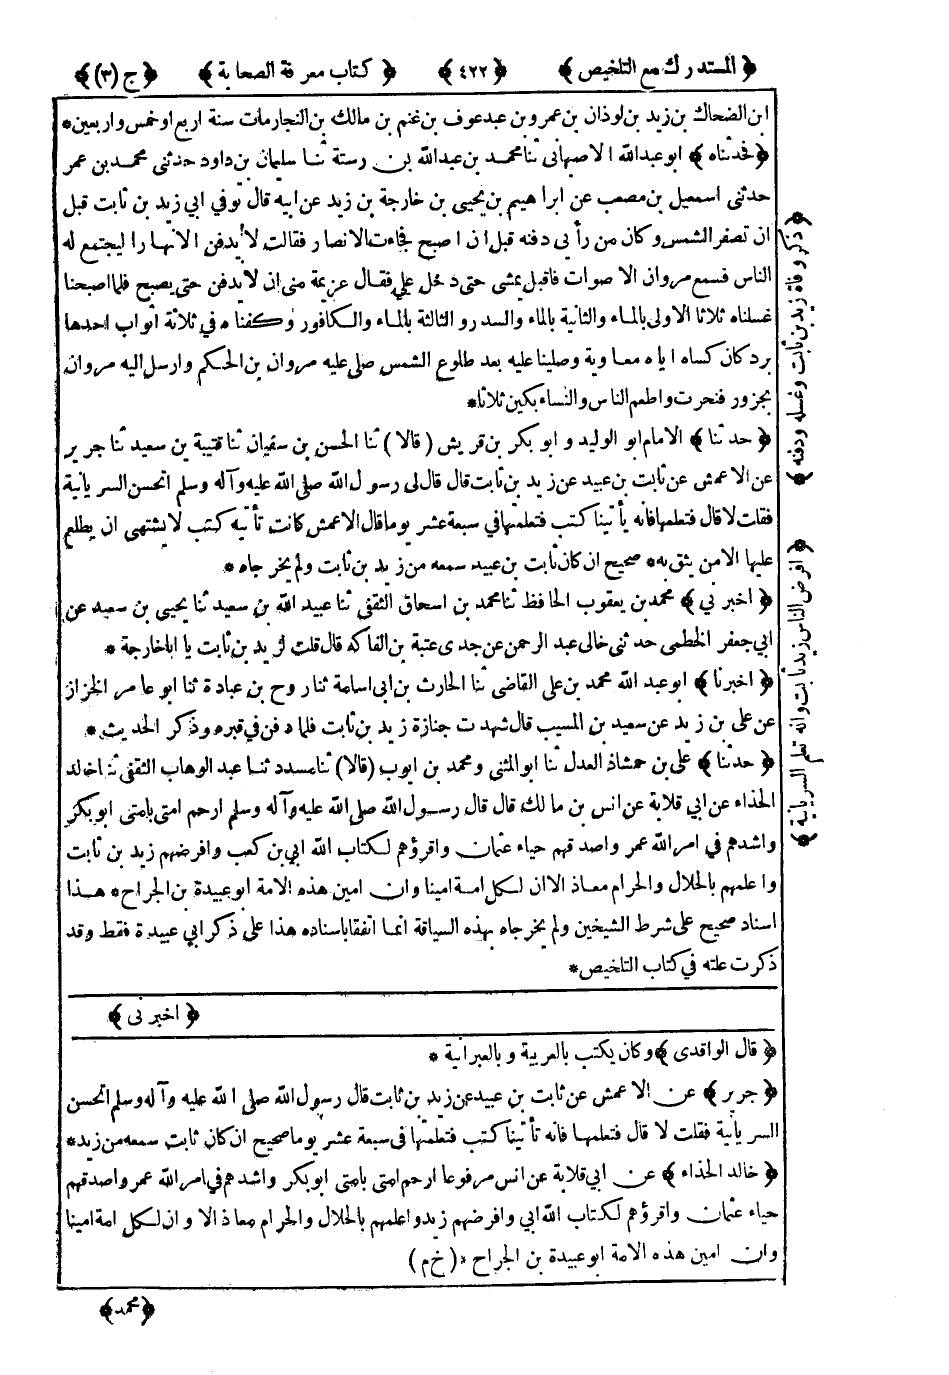 ﴿ المستدرك مع التلخيص ﴾ ﴿ ٤٢٢ ﴾ ﴿ كتاب معرفة الصحابة ﴾ ﴿ ج (٣) ﴾
ابن الضحاك بن زيد بن لوذان بن عمرو بن عبد عوف بن غنم بن مالك بن النجار مات سنة اربع او خمس واربعين *
﴿ فحدثناه ﴾ ابو عبد الله الاصبهانى ثنا محمد بن عبد الله بن رستة ثنا سليمان بن داود حدثنى محمد بن عمر
حدثنى اسمعيل بن مصعب عن ابراهيم بن يحيى بن خارجة بن زيد عن ابيه قال توفي ابي زيد بن ثابت قبل
ان تصفر الشمس وكان من رأيى دفنه قبل ان اصبح فجاءت الانصار فقالت لا يدفن الا نهارا ليجتمع له
الناس فسمع مروان الاصوات فاقبل يمشى حتى دخل علي فقال عزيمة منى ان لا يدفن حتى يصبح فلما اصبحنا
غسلناه ثلاثا الاولى بالماء والثانية بالماء والسدر و الثالثة بالماء والكافور وكفناه في ثلاثة اثواب احدها
برد كان كساه اياه معاوية وصلينا عليه بعد طلوع الشمس صلى عليه مروان بن الحكم وارسل اليه مروان
بجزور فنحرت واطعم الناس والنساء بكين ثلاثا *
﴿ حدثنا ﴾ الامام ابو الوليد و ابو بكر بن قريش ( قالا ) ثنا الحسن بن سفيان ثنا قتيبة بن سعيد ثنا جرير
عن الاعمش عن ثابت بن عبيد عن زيد بن ثابت قال قال لى رسول الله صلى الله عليه وآله وسلم اتحسن السريانية
فقلت لا قال فتعلمها فانه يأتينا كتب فتعلمتها في سبعة عشر يوما قال الاعمش كانت تأتيه كتب لا يشتهى ان يطلع
عليها الا من يثق به * صحيح ان كان ثابت بن عبيد سمعه من زيد بن ثابت ولم يخرجاه *
﴿ اخبرني ﴾ محمد بن يعقوب الحافظ ثنا محمد بن اسحاق الثقفى ثنا عبيد الله بن سعيد ثنا يحيى بن سعيد عن
ابي جعفر الخطمى حدثنى خالى عبد الرحمن عن جدى عتبة بن الفاكه قال قلت لزيد بن ثابت يا ابا خارجة *
﴿ اخبرنا ﴾ ابو عبد الله محمد بن على القاضى ثنا الحارث بن ابى اسامة ثنا روح بن عبادة ثنا ابو عامر الخزاز
عن على بن زيد عن سعيد بن المسيب قال شهدت جنازة زيد بن ثابت فلما دفن في قبره وذكر الحديث *
﴿ حدثنا ﴾ على بن حمشاذ العدل ثنا ابو المثنى ومحمد بن ايوب ( قالا ) ثنا مسدد ثنا عبد الوهاب الثقفى ثنا خالد
الحذاء عن ابي قلابة عن انس بن مالك قال قال رسول الله صلى الله عليه وآله وسلم ارحم امتى بامتى ابو بكر
واشدهم في امر الله عمر واصدقهم حياء عثمان واقرؤهم لكتاب الله ابي بن كعب وافرضهم زيد بن ثابت
واعلمهم بالحلال والحرام معاذ الا ان لكل امة امينا وان امين هذه الامة ابو عبيدة بن الجراح * هذا
اسناد صحيح على شرط الشيخين ولم يخرجاه بهذه السياقة انما اتفقا باسناده هذا على ذكر ابي عبيدة فقط وقد
ذكرت علته في كتاب التلخيص *
﴿ اخبرنى ﴾
﴿ قال الواقدى ﴾ وكان يكتب بالعربية و بالعبرانية *
﴿ جرير ﴾ عن الاعمش عن ثابت بن عبيد عن زيد بن ثابت قال رسول الله صلى الله عليه وآله وسلم اتحسن
السريانية فقلت لا قال فتعلمها فانه تأتينا كتب فتعلمتها فى سبعة عشر يوما صحيح ان كان ثابت سمعه من زيد *
﴿ خالد الحذاء ﴾ عن ابي قلابة عن انس مرفوعا ارحم امتى بامتى ابو بكر واشدهم في امر الله عمر واصدقهم
حياء عثمان واقرؤهم لكتاب الله ابي وافرضهم زيد واعلمهم بالحلال والحرام معاذ الا وان لكل امة امينا
وان امين هذه الامة ابو عبيدة بن الجراح * ( خ م )
﴿ محمد ﴾
﴿ ذكر وفاة زيد بن ثابت وغسله ودفنه ﴾
﴿ افرض الناس زيد بن ثابت وانه تعلم السريانية ﴾